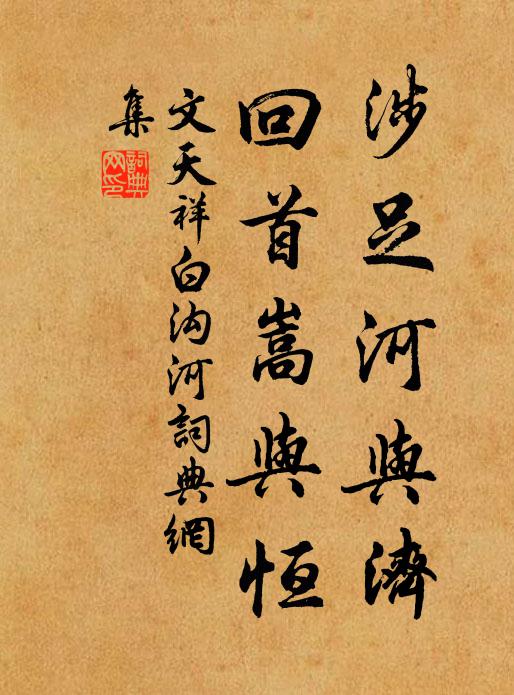 涉足河與濟
回首嵩與恒
文天祥白沟河詞典網
集
詞典
网印